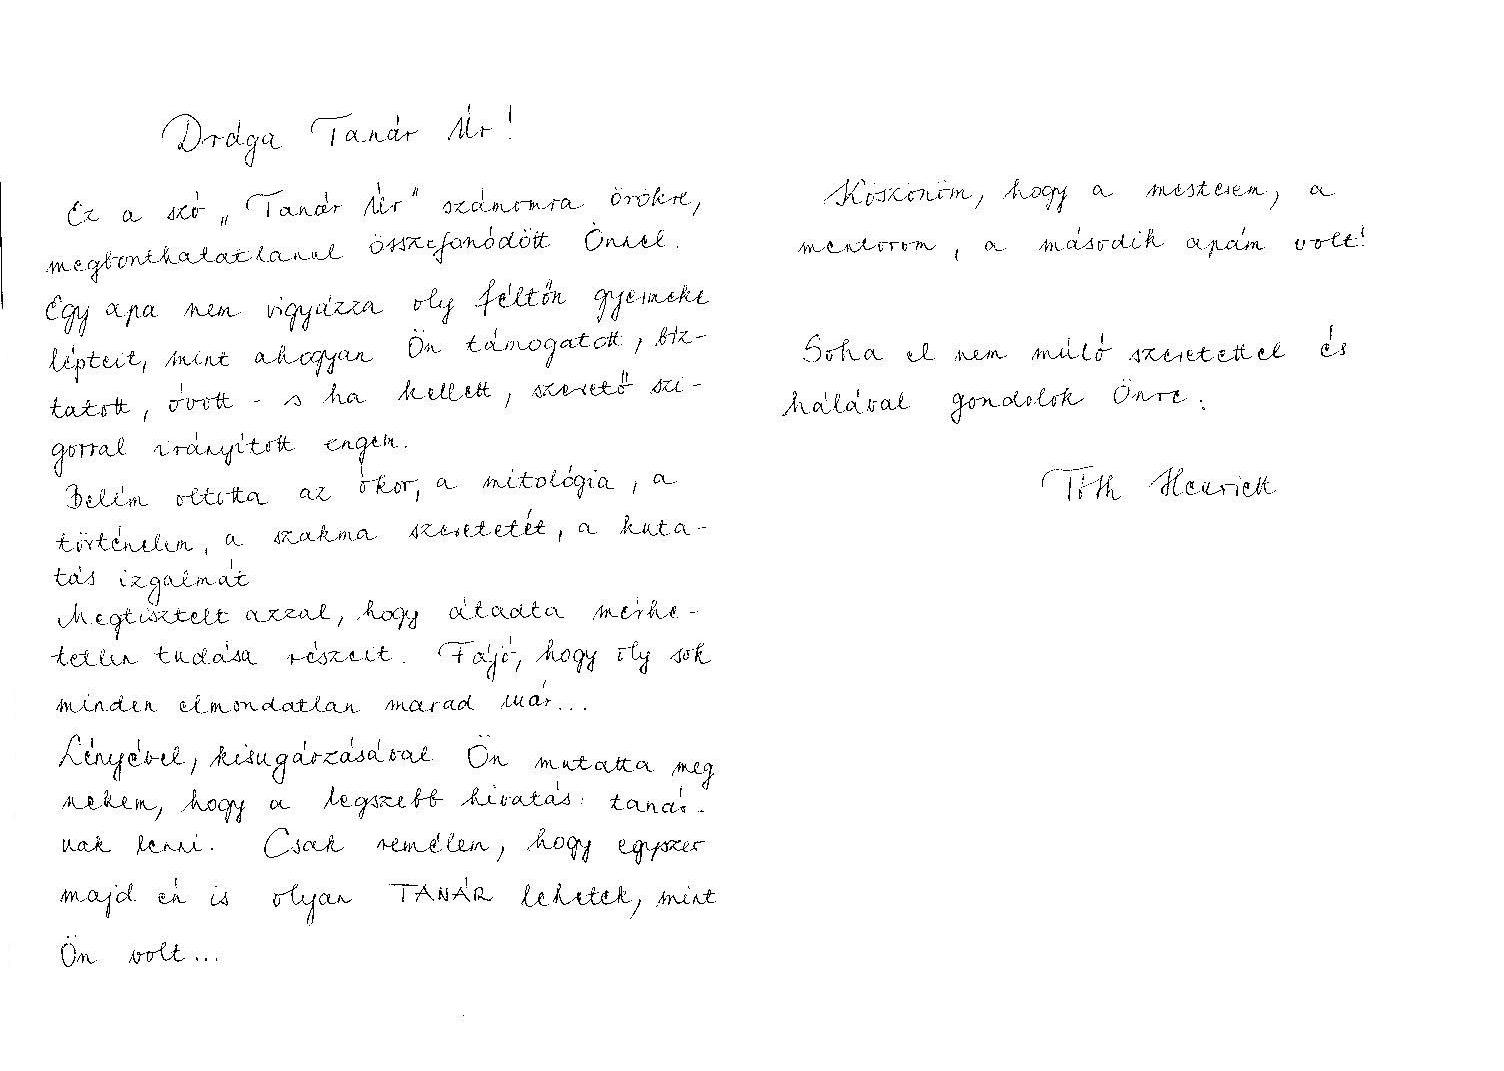 Drága Tanár Úr!
Ez a szó „Tanár Úr" számomra örökre,
megbonthatatlanul összefonódott Önnel.
Egy apa nem vigyázza oly féltőn gyermeke
lépteit, mint ahogyan Ön támogatott, bíz-
tatott, óvott - s ha kellett, szerető szi-
gorral irányított engem.
Belém oltotta az ókor, a mitológia, a
történelem, a szakma szeretetét, a kuta-
tás izgalmát
Megtisztelt azzal, hogy átadta mérhe-
tetlen tudása részeit. Fájó, hogy oly sok
minden elmondatlan marad már...
Lényével, kisugárzásával Ön mutatta meg
nekem, hogy a legszebb hivatás: tanár-
nak lenni. Csak remélem, hogy egyszer
majd én is olyan TANÁR lehetek, mint
Ön volt...
Köszönöm, hogy a mesterem, a
mentorom, a második apám volt!
Soha el nem múló szeretettel és
hálával gondolok Önre:
Tóth Henriett